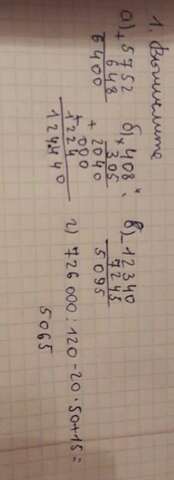 1. Вычислите
а) + 5752
648
6400
б) × 408
305
+ 2040
000
1224
124440
в) - 12340
7245
5095
г) 726000 : 120 - 20 · 50 + 15 =
5065